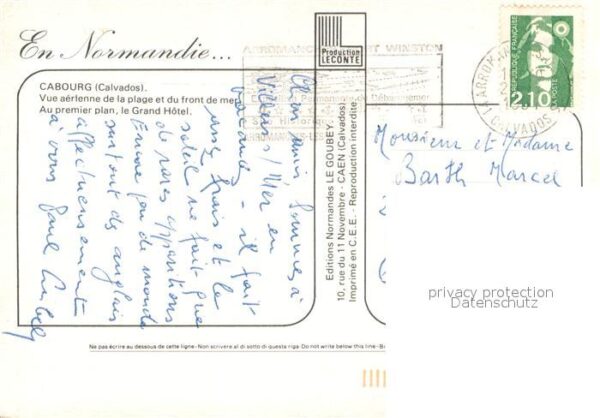 En Normandie...
CABOURG (Calvados).
Vue aérienne de la plage et du front de mer
Au premier plan, le Grand Hôtel.
Production
LECONTE
ARROMANCHES PORT WINSTON
RÉPUBLIQUE FRANÇAISE
LA POSTE
2,10
CALVADOS
Chers amis, sommes à
Villers s/Mer en
vacances - il fait
assez frais et le
soleil ne fait que
de rares apparitions
Encore peu de monde
surtout des anglais
affectueusement
à vous Paul
Editions Normandes LE GOUBEY
10, rue du 11 Novembre - CAEN (Calvados)
Imprimé en C.E.E. - Reproduction interdite
Monsieur et Madame
Barth Marcel
privacy protection
Datenschutz
Ne pas écrire au dessous de cette ligne - Non scrivere al di sotto di questa riga - Do not write below this line -